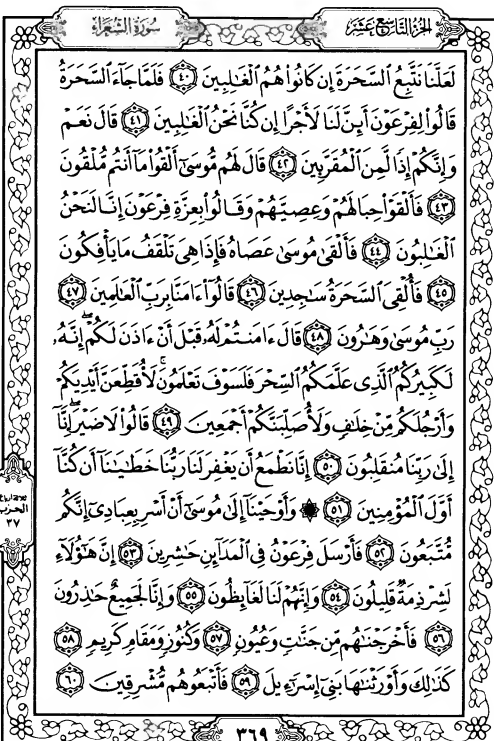 الجزء التاسع عشر
سورة الشعراء
لَعَلَّنَا نَتَّبِعُ ٱلسَّحَرَةَ إِن كَانُوا۟ هُمُ ٱلْغَٰلِبِينَ ٤٠ فَلَمَّا جَآءَ ٱلسَّحَرَةُ
قَالُوا۟ لِفِرْعَوْنَ أَئِنَّ لَنَا لَأَجْرًا إِن كُنَّا نَحْنُ ٱلْغَٰلِبِينَ ٤١ قَالَ نَعَمْ
وَإِنَّكُمْ إِذًا لَّمِنَ ٱلْمُقَرَّبِينَ ٤٢ قَالَ لَهُم مُّوسَىٰٓ أَلْقُوا۟ مَآ أَنتُم مُّلْقُونَ
٤٣ فَأَلْقَوْا۟ حِبَالَهُمْ وَعِصِيَّهُمْ وَقَالُوا۟ بِعِزَّةِ فِرْعَوْنَ إِنَّا لَنَحْنُ
ٱلْغَٰلِبُونَ ٤٤ فَأَلْقَىٰ مُوسَىٰ عَصَاهُ فَإِذَا هِىَ تَلْقَفُ مَا يَأْفِكُونَ
٤٥ فَأُلْقِىَ ٱلسَّحَرَةُ سَٰجِدِينَ ٤٦ قَالُوٓا۟ ءَامَنَّا بِرَبِّ ٱلْعَٰلَمِينَ ٤٧
رَبِّ مُوسَىٰ وَهَٰرُونَ ٤٨ قَالَ ءَامَنتُمْ لَهُۥ قَبْلَ أَنْ ءَاذَنَ لَكُمْ ۖ إِنَّهُۥ
لَكَبِيرُكُمُ ٱلَّذِى عَلَّمَكُمُ ٱلسِّحْرَ فَلَسَوْفَ تَعْلَمُونَ ۚ لَأُقَطِّعَنَّ أَيْدِيَكُمْ
وَأَرْجُلَكُم مِّنْ خِلَٰفٍ وَلَأُصَلِّبَنَّكُمْ أَجْمَعِينَ ٤٩ قَالُوا۟ لَا ضَيْرَ ۖ إِنَّآ
إِلَىٰ رَبِّنَا مُنقَلِبُونَ ٥٠ إِنَّا نَطْمَعُ أَن يَغْفِرَ لَنَا رَبُّنَا خَطَٰيَٰنَآ أَن كُنَّآ
أَوَّلَ ٱلْمُؤْمِنِينَ ٥١ ۞ وَأَوْحَيْنَآ إِلَىٰ مُوسَىٰٓ أَنْ أَسْرِ بِعِبَادِىٓ إِنَّكُم
مُّتَّبَعُونَ ٥٢ فَأَرْسَلَ فِرْعَوْنُ فِى ٱلْمَدَآئِنِ حَٰشِرِينَ ٥٣ إِنَّ هَٰٓؤُلَآءِ
لَشِرْذِمَةٌ قَلِيلُونَ ٥٤ وَإِنَّهُمْ لَنَا لَغَآئِظُونَ ٥٥ وَإِنَّا لَجَمِيعٌ حَٰذِرُونَ
٥٦ فَأَخْرَجْنَٰهُم مِّن جَنَّٰتٍ وَعُيُونٍ ٥٧ وَكُنُوزٍ وَمَقَامٍ كَرِيمٍ ٥٨
كَذَٰلِكَ وَأَوْرَثْنَٰهَا بَنِىٓ إِسْرَٰٓءِيلَ ٥٩ فَأَتْبَعُوهُم مُّشْرِقِينَ ٦٠
ثلاثة ارباع
الحزب
٣٧
٣٦٩